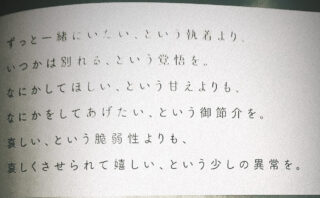 ずっと一緒にいたい、という執着より、
いつかは別れる、という覚悟を。
なにかしてほしい、という甘えよりも、
なにかをしてあげたい、という御節介を。
哀しい、という脆弱性よりも、
哀しくさせられて嬉しい、という少しの異常を。